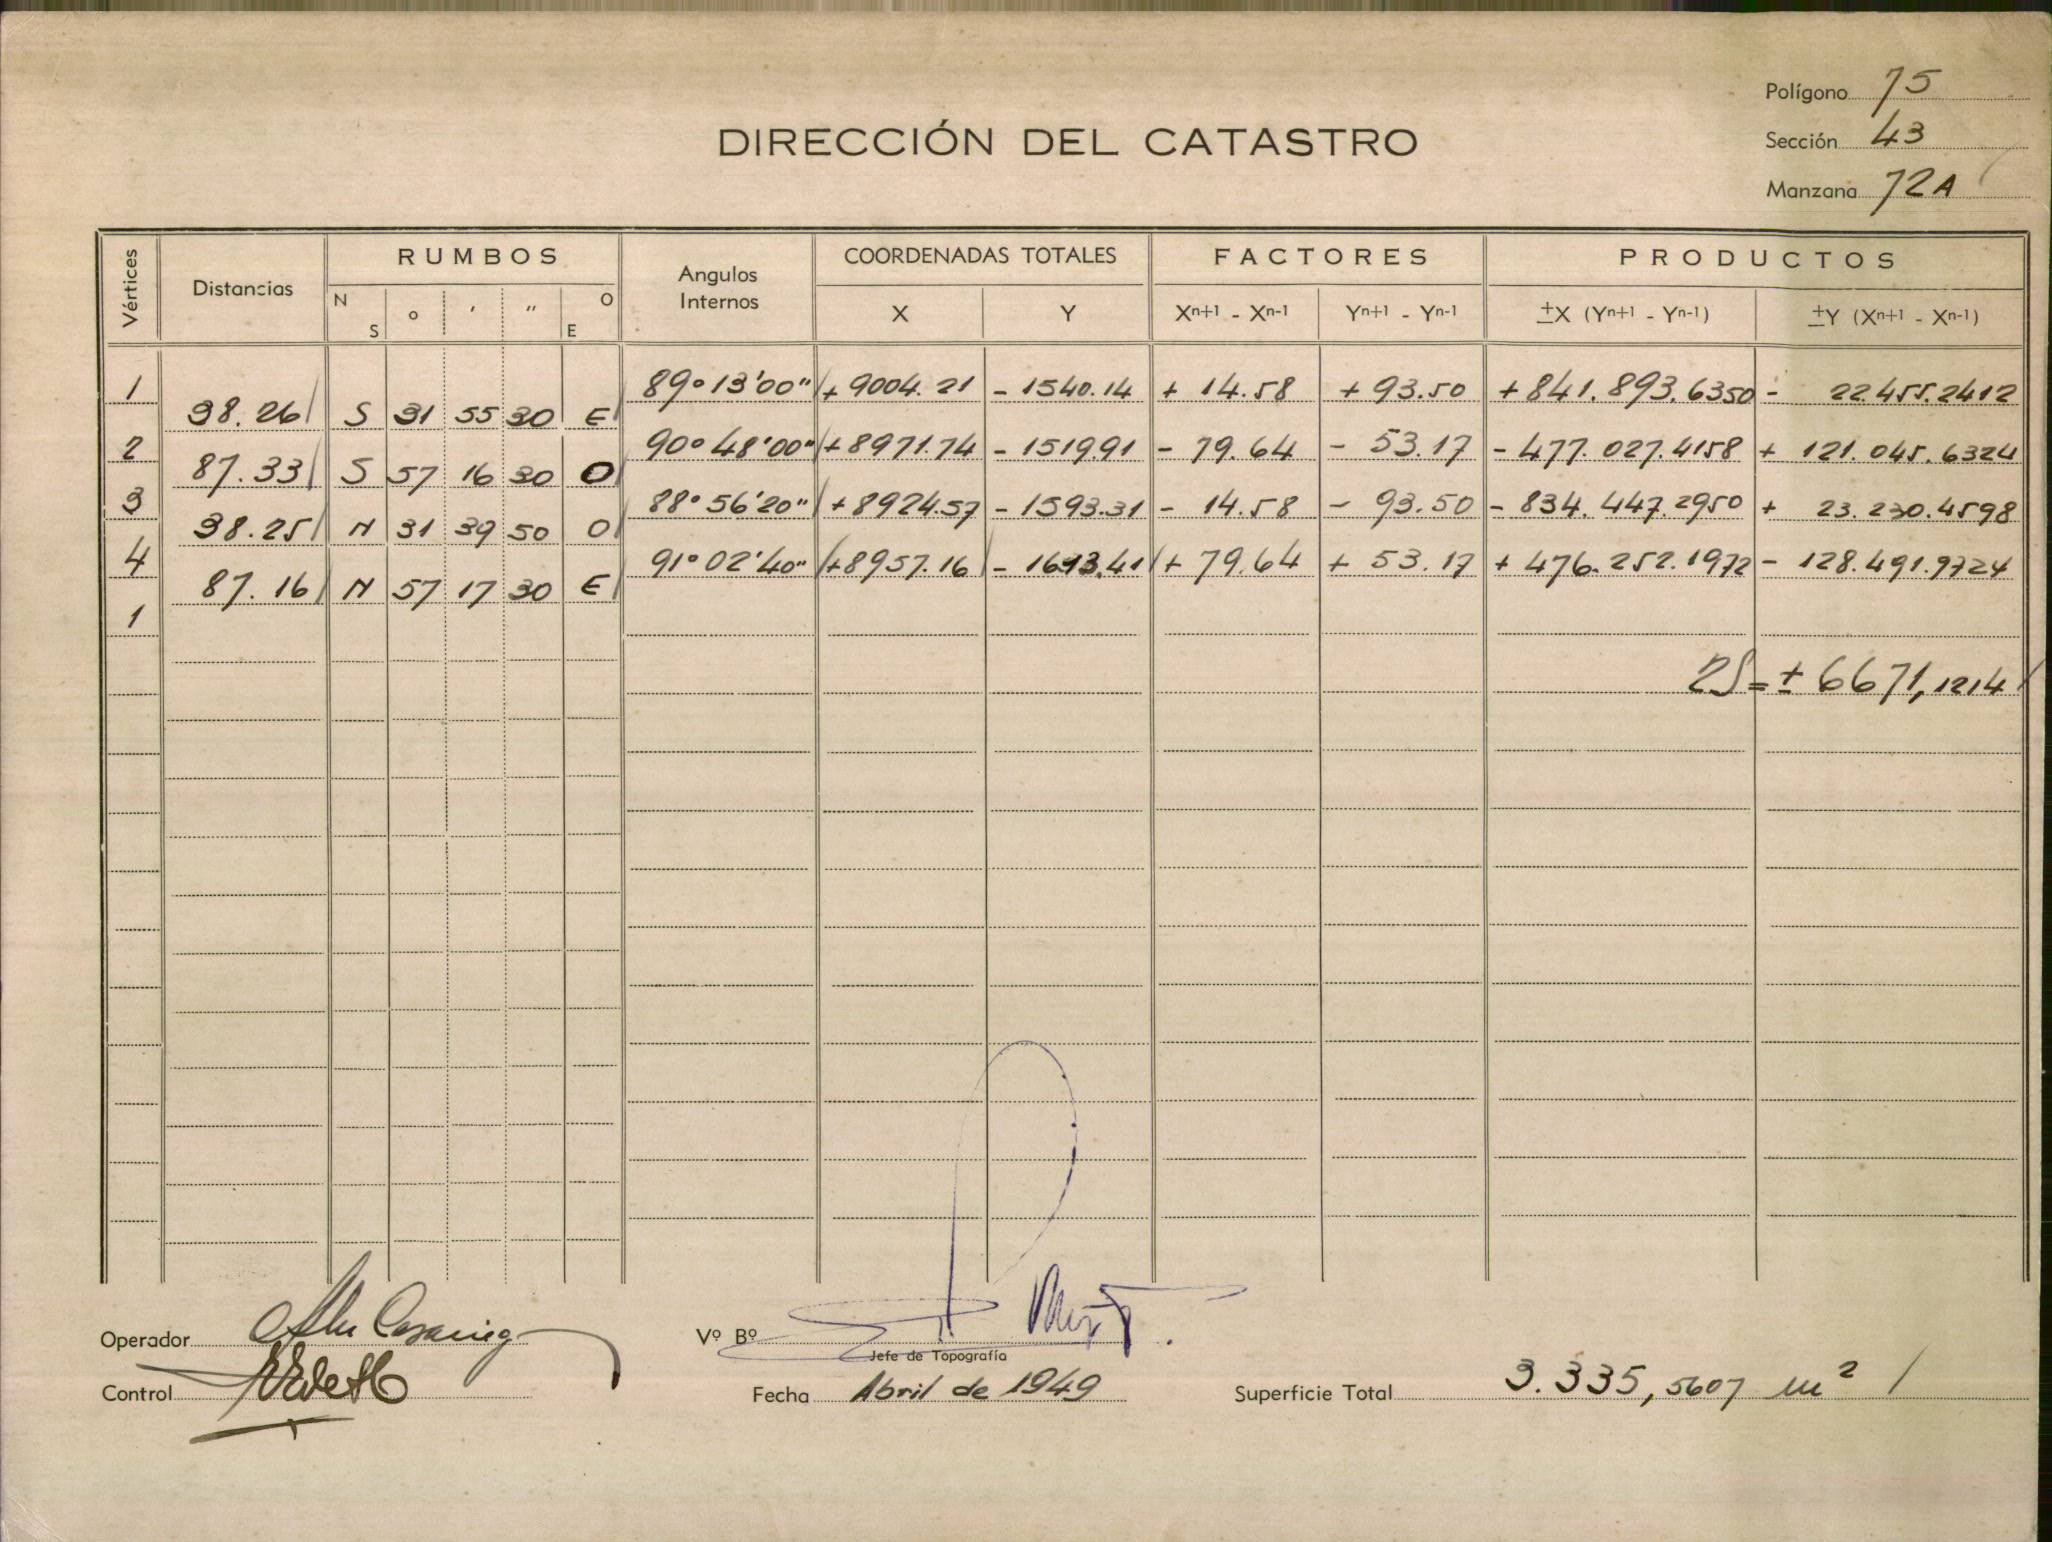 Polígono 75
DIRECCIÓN DEL CATASTRO
Sección 43
Manzana 72A
Vértices Distancias RUMBOS Angulos Internos COORDENADAS TOTALES FACTORES PRODUCTOS
N S ° ' " O E X Y Xn+1 - Xn-1 Yn+1 - Yn-1 ±X (Yn+1 - Yn-1) ±Y (Xn+1 - Xn-1)
1 89°13'00" + 9004.21 - 1540.14 + 14.58 + 93.50 + 841.893.6350 - 22.455.2412
38.26 S 31 55 30 E
2 90°48'00" + 8971.74 - 1519.91 - 79.64 - 53.17 - 477.027.4158 + 121.045.6324
87.33 S 57 16 30 O
3 88°56'20" + 8924.57 - 1593.31 - 14.58 - 93.50 - 834.447.2950 + 23.230.4598
38.25 N 31 39 50 O
4 91°02'40" + 8957.16 - 1613.41 + 79.64 + 53.17 + 476.252.1972 - 128.491.9724
87.16 N 57 17 30 E
1
2S = ± 6671,1214
Operador
Vº Bº
Jefe de Topografía
Control
Fecha Abril de 1949
Superficie Total 3.335,5607 m²